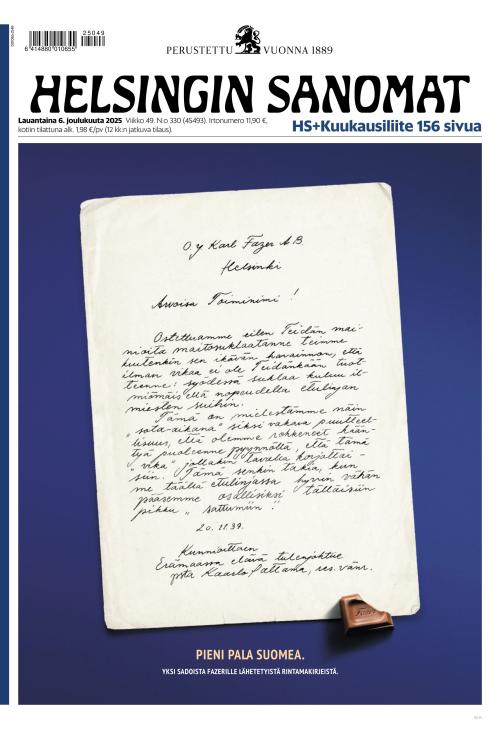 25049
6 414880 010655
PERUSTETTU VUONNA 1889
HELSINGIN SANOMAT
Lauantaina 6. joulukuuta 2025 Viikko 49. N:o 330 (45493). Irtonumero 11,90 €,
kotiin tilattuna alk. 1,98 €/pv (12 kk:n jatkuva tilaus).
HS+Kuukausiliite 156 sivua
O.y Karl Fazer A.B.
Helsinki
Arvoisa Toiminimi!
Ostettuamme eilen Teidän mai-
nioita maitosuklaatanne teimme
kuitenkin sen ikävän havainnon, että
ilman vikaa ei ole Teidänkään tuot-
teenne: syödessä suklaa kuluu il-
miömäisellä nopeudella etulinjan
miesten suihin.
Tämä on mielestämme näin
"sota-aikana" siksi vakava puutteel-
lisuus, että olemme rohkeneet kään-
tyä puoleenne pyynnöllä, että tämä
"vika" jollakin tavalla korjattai-
siin. Tämä senkin takia, kun
me täällä etulinjassa hyvin vähän
pääsemme osallisiksi tällaisiin
pikku "sattumiin".
20.11.39.
Kunnioittaen
Erämaassa elävä tulenjohtue
psta Kaarlo res. vänr.
Fazer
PIENI PALA SUOMEA.
YKSI SADOISTA FAZERILLE LÄHETETYISTÄ RINTAMAKIRJEISTÄ.